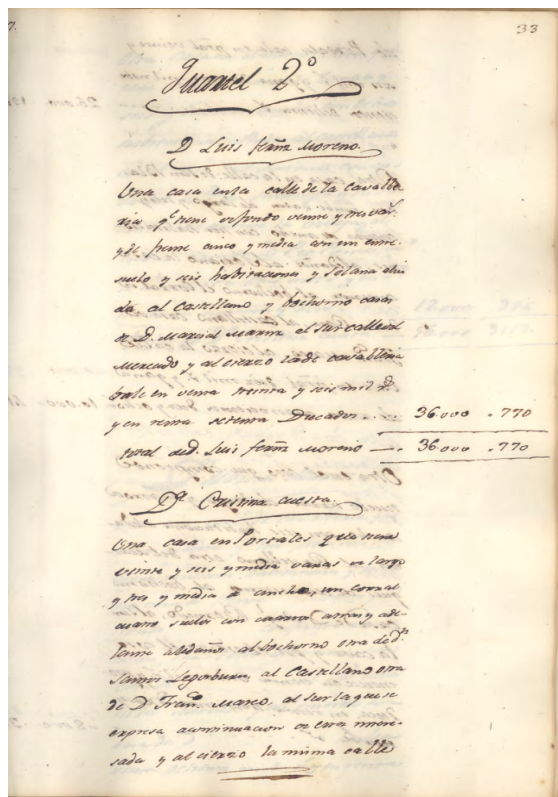 33
Quartel 2º
D. Luis ferñz Moreno
Una casa en la calle de la Cavalle
ria qe. tiene de fondo veinte y tres vars.
y de frente cinco y media con un entre
suelo y seis habitaciones y solana alin
da, al Castellano y bochorno casas
de D. Marcial Martnz. al sur calle del
Mercado y al cierzo la de Cavalleria
bale en venta treinta y seis mil rs.
y en renta setenta Ducados . . . . 36.000 . 770
total de D. Luis ferñz Moreno — . 36.000 . 770
Dª. Cristina cuesta.
Una casa en Portales que tiene
veinte y seis y media varas de largo
y tres y media de ancho, un corral
cuatro suelos con cuartos atras y ade
lante aledaños al bochorno otra de Ds.
Santos, al Castellano otra
de D. Franco. Marco, al sur la que se
expresa a continuacion de esta intere
sada y al cierzo la misma calle